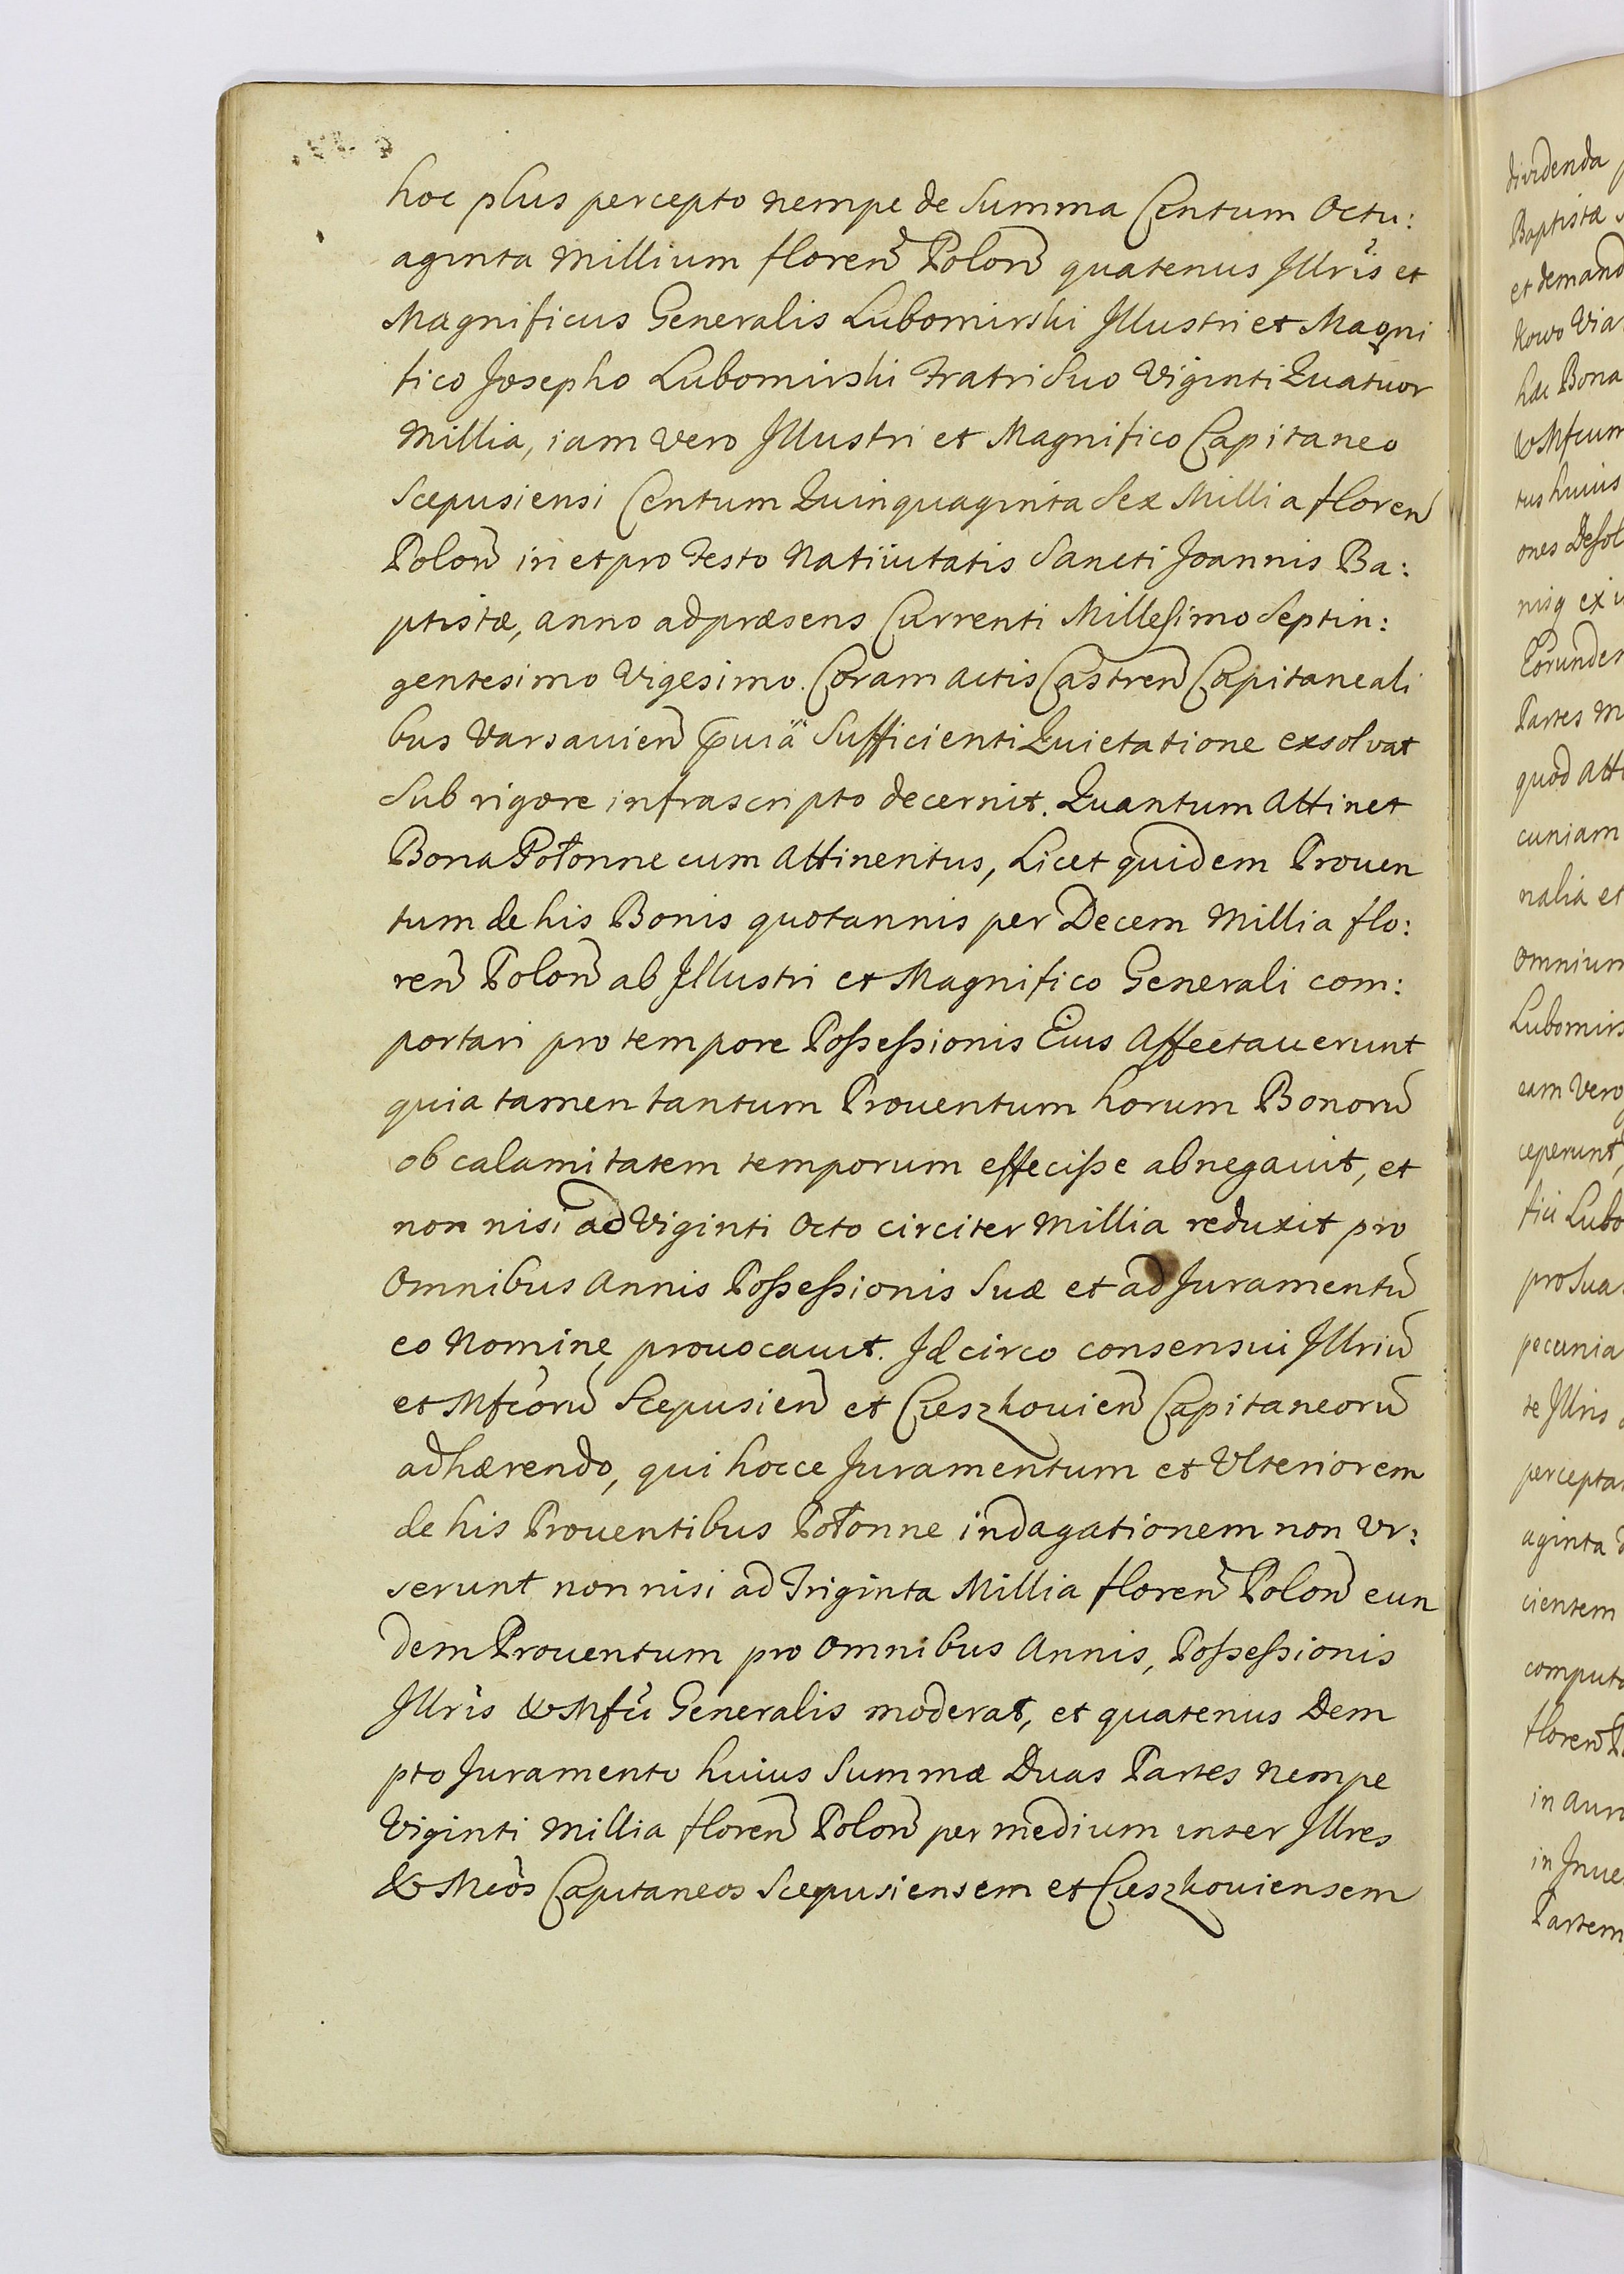 hoc plus percepto nempe de Summa Centum Octu:
aginta Millium floren Polon quatenus Jllris et
Magnificus Generalis Lubomirski Jllustri et Magni
fico Josepho Lubomirski Fratri Suo Viginti Quatuor
Millia, iam Vero Jllustri et Magnifico Capitaneo
Scepusiensi Centum Quinquaginta Sex Millia floren
Polon in et pro Festo Natiuitatis Sancti Joannis Ba:
ptistæ, anno ad præsens Currenti Millesimo Septin:
gentesimo Vigesimo. Coram actis Castren Capitaneali
bus Varsauien Sufficienti Quietatione exsolvat
Sub rigore infrascripto decernit. Quantum Attinet
Bona Połonne cum Attinentus, Licet quidem Prouen
tum de his Bonis quotannis per Decem Millia flo:
ren Polon ab Jllustri et Magnifico Generali com:
portari pro tempore Possessionis Eius Affectauerunt
quia tamen tantum Prouentum horum Bonorũ
ob calamitatem temporum effecisse abnegauit, et
non nisi ad Viginti Octo circiter Millia reduxit pro
Omnibus Annis Possessionis Suæ et ad Juramentũ
eo Nomine prouocauit. Jdcirco consensui Jllriũ
et Mfcorũ Scepusien et Cieszkouien Capitaneorũ
adhærendo, qui hocce Juramentum et Vlteriorem
de his Prouentibus Połonne indagationem non Vr:
serunt non nisi ad Triginta Millia floren Polon eun
dem Prouentum pro Omnibus Annis, Possessionis
Jllris & Mfci Generalis moderat, et quatenus Dem
pto Juramento huius Summæ Duas Partes Nempe
Viginti Millia floren Polon per medium inter Jllres
& Mcos Capitaneos Scepusiensem et Cieszkouiensem
dividenda
Baptistæ
et demand
hæ Bona
& Mfcum
tus huius
ones Desol
Partes
quod Atti
cuniam
nalia et
omnium
Lubomirs
eam Vero
ceperunt,
fici Lubo
pro Sua
pecunia
te Jllris
percepta
aginta
cientem
computa
floren
in auro
in Jnue
Partem